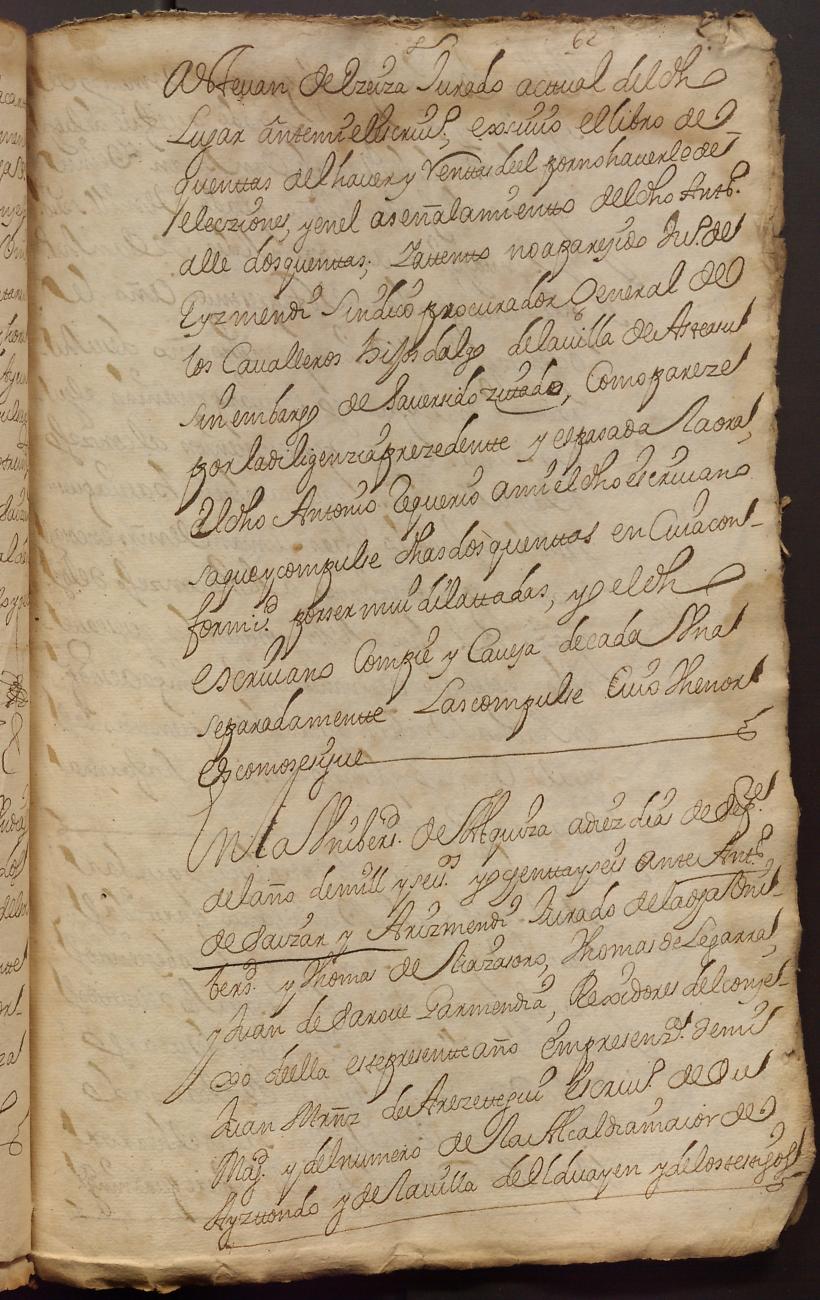 62
Esteuan de Yzeiza Jurado acttual del dh̃o
Lugar ante mi el escriu.º, exsiuio el libro de
quenttas del hauer y Renttas deel por no hauerle de
elecziones, y en el a señalamientto del dho Antt.º
alle dos quenttas; Y attentto no a parezido
Eyzmendi Sindico procurador General de
los Caualleros hijosdalgo de la uilla de Asteasu
sin embargo de hauer sido zittado, Como pareze
por la diligenzia prezedentte y es pasada la ora,
el dho Antonio Requerio a mi el dho escriuano
saque y compulse dhas dos quenttas en Cuia con-
formid.d por ser mui dilattadas, yo el dh̃o
escriuano Compie y Caueza de cada Vna
separadamentte Las compulse Cuio thenor
es como se sigue
En la Vnibers.d de Alquiza a diez dias de
del año de mill y seis.os y ochentta y seis ante Antt.º
de Saizar y Arizmendi Jurado de la dha Vni-
bers.d y Thomas de Lizasoro, Thomas de Legarra,
y Juan de Saroue Garmendia, Rexidores del conze-
xo deella este presentte año en presenz.ª de mi
Juan Mrñz de Arezetegui escriu.º de Su
Mag.d y del numero de la Alcaldia maior de
Ayzttondo y de la uilla de Elduayen y de los testigos